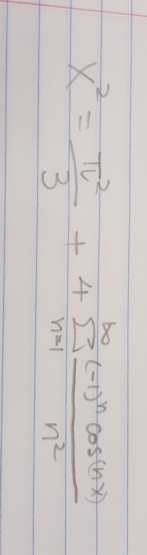 x² = π²/3 + 4 ∑_{n=1}^{∞} (-1)ⁿ cos(nx) / n²